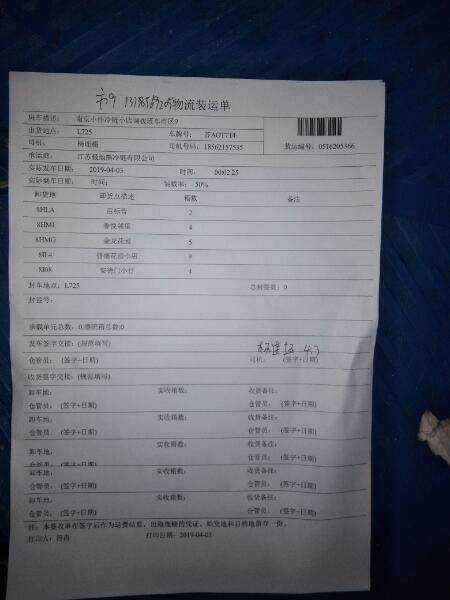 物流装运单
班车描述： 南京小件冷链小店满夜班车市区9
出货地点： L725 车牌号： 苏AOT714
司机： 司机号码： 18562157535 装运编号：0516205366
承运商：
实际发车日期： 2019-04-03 时间： 00:02:25
实际到车日期： 时间： 装载率： 50%
卸货地 卸货点描述 箱数 备注
8HLA 苜蓿营 2
8HMI 香悦邻里 4
8HMG 金龙花园 5
8IL4
8I08 安德门小行 4
封车地点： L725 总封签数：0
封签号：
承载单元总数：0,
发车签字交接：(规范填写)
仓管员： (签字+日期) 司机： (签字+日期) 4.3
收货签字交接：(规范填写)
卸车地： 实收箱数： 收货备注：
仓管员： (签字+日期) 仓管员： (签字+日期)
卸车地： 实收箱数： 收货备注：
仓管员： (签字+日期) 仓管员： (签字+日期)
卸车地： 实收箱数： 收货备注：
仓管员： (签字+日期) 仓管员： (签字+日期)
卸车地： 实收箱数： 收货备注：
仓管员： (签字+日期) 仓管员： (签字+日期)
卸车地： 实收箱数： 收货备注：
仓管员： (签字+日期) 仓管员： (签字+日期)
注：本签收单在签字后作为运费结算，出险理赔的凭证，始发地和目的地留存一份。
打印人： 打印日期：2019-04-03